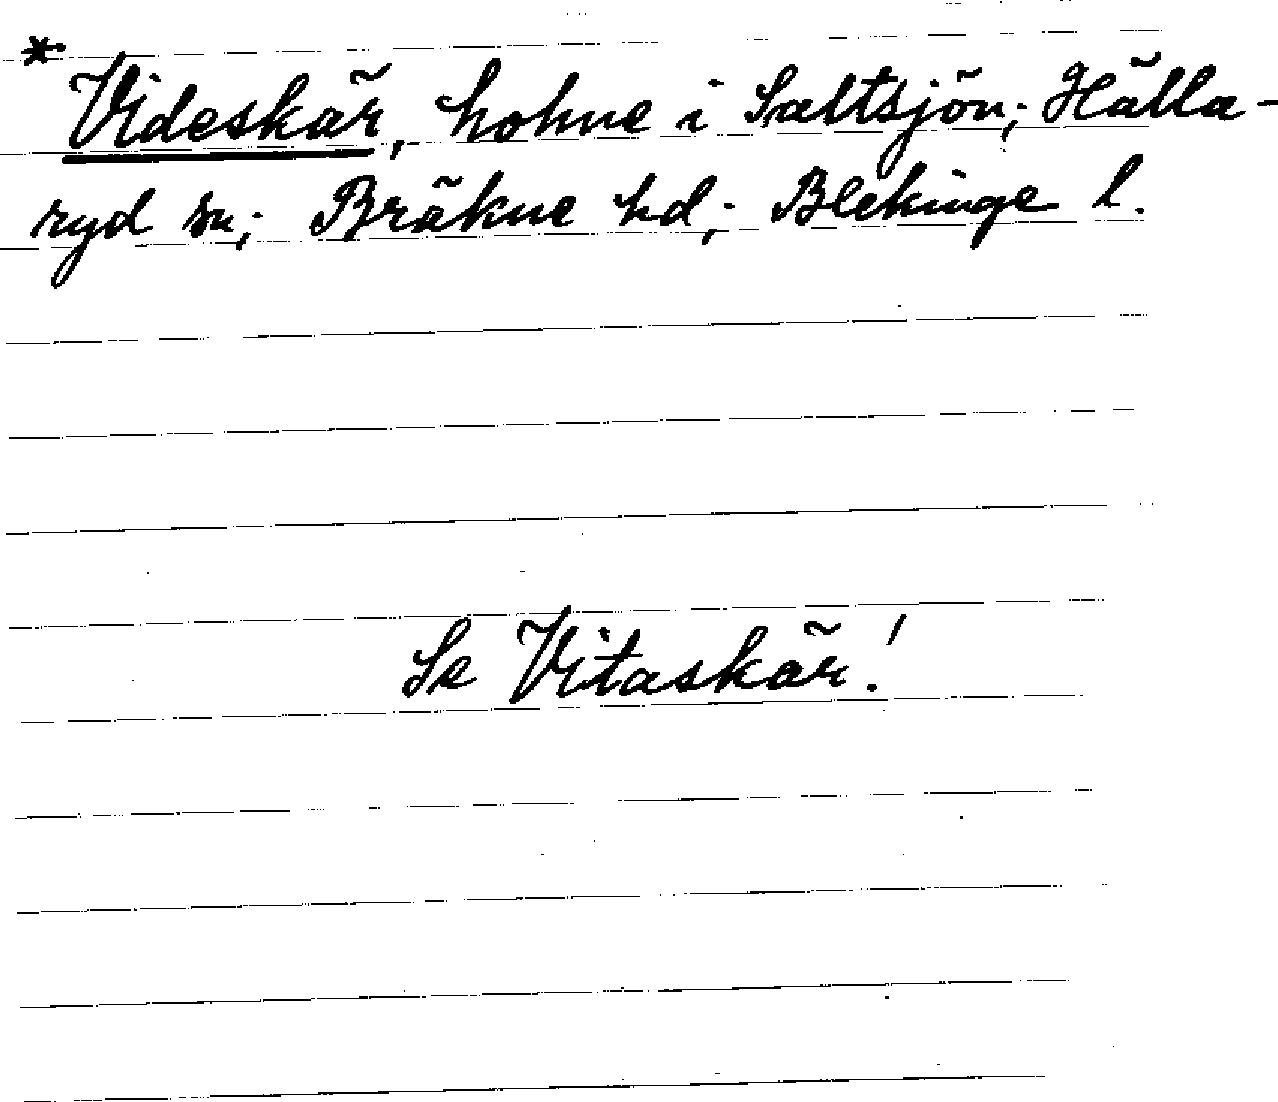 * Videskär, holme i Saltsjön; Hälla-
ryd sn; Bräkne hd; Blekinge l.
Se Vitaskär!